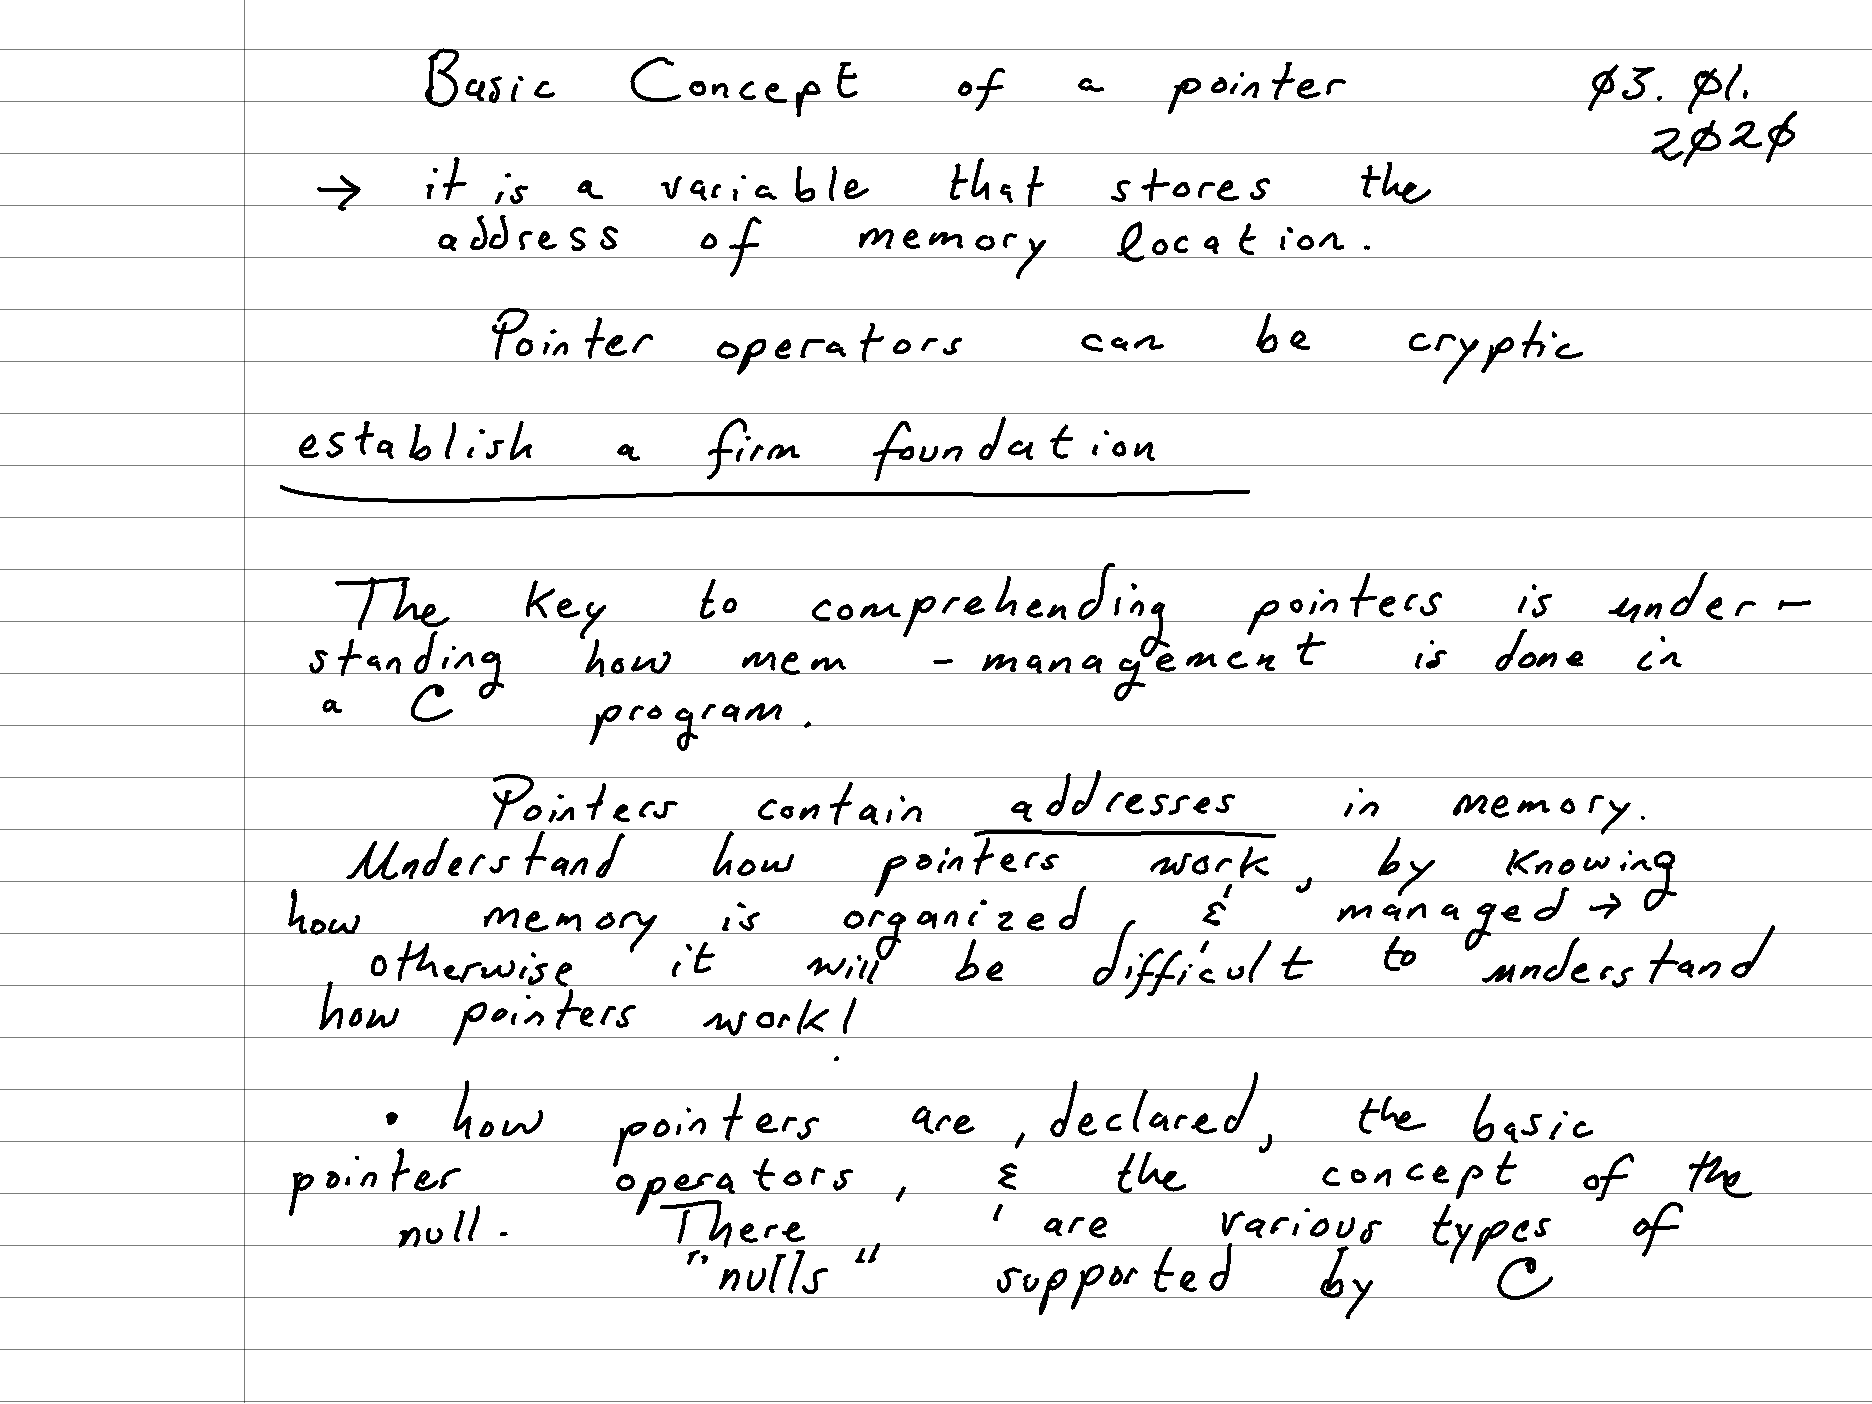 Basic Concept of a pointer
03.01.
2020
→ it is a variable that stores the
address of memory location.
Pointer operators can be cryptic
establish a firm foundation
The key to comprehending pointers is under-
standing how mem - management is done in
a C program.
Pointers contain addresses in memory.
Understand how pointers work, by knowing
how memory is organized, & managed →
otherwise it will be difficult to understand
how pointers work!
• how pointers are, declared, the basic
pointer operators, & the concept of the
null. There are various types of
"nulls" supported by C